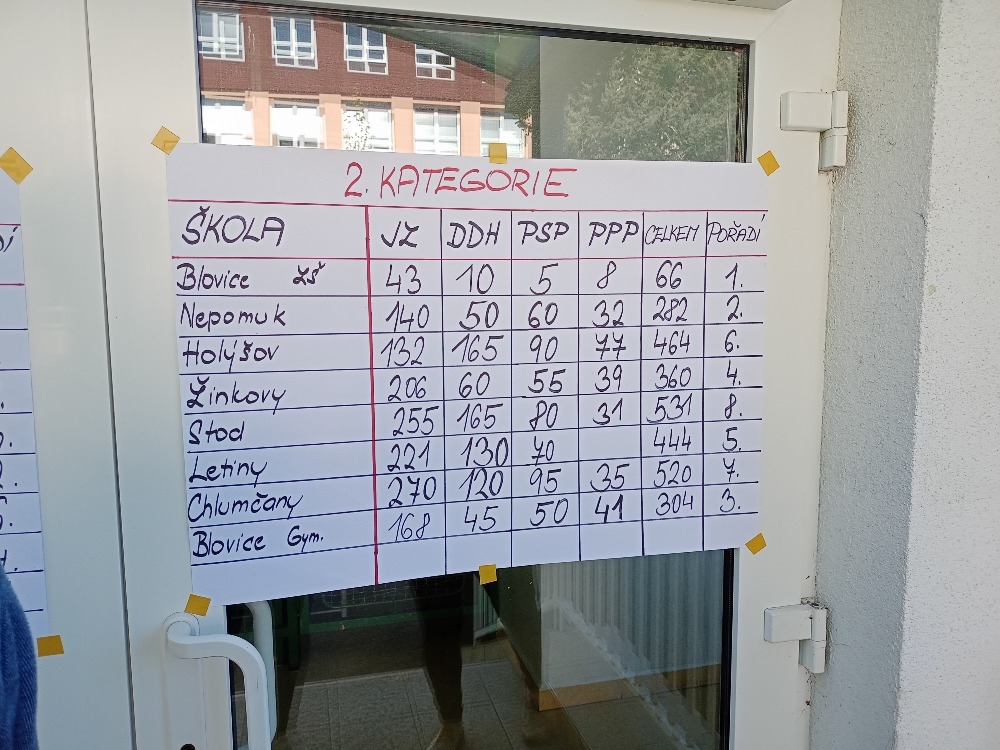 2. KATEGORIE
ŠKOLA JZ DDH PSP PPP CELKEM POŘADÍ
Blovice ZŠ 43 10 5 8 66 1.
Nepomuk 140 50 60 32 282 2.
Holýšov 132 165 90 77 464 6.
Žinkovy 206 60 55 39 360 4.
Stod 255 165 80 31 531 8.
Letiny 221 130 70 444 5.
Chlumčany 270 120 95 35 520 7.
Blovice Gym. 168 45 50 41 304 3.